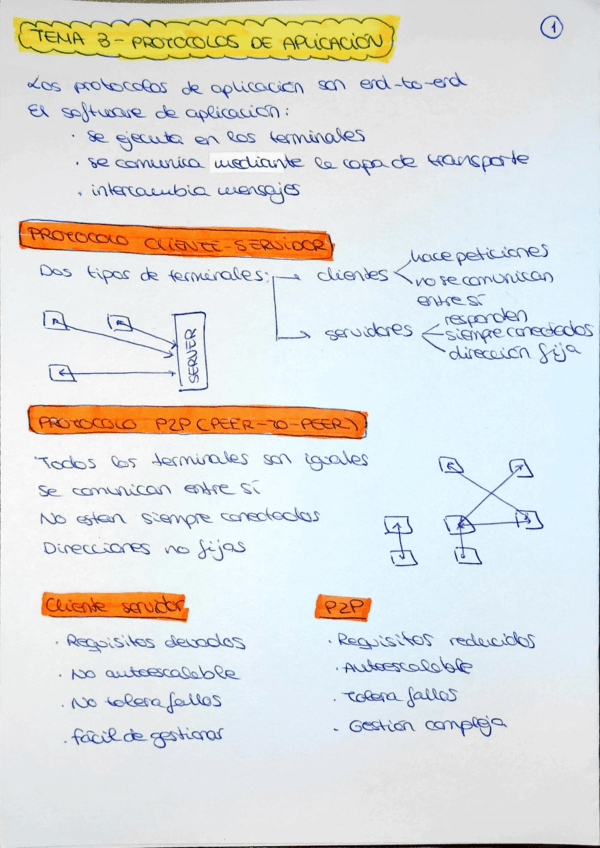 TEMA 3 - PROTOCOLOS DE APLICACIÓN
1
Los protocolos de aplicación son end-to-end
El software de aplicación:
· se ejecuta en los terminales
· se comunica mediante la capa de transporte
· intercambia mensajes
PROTOCOLO CLIENTE-SERVIDOR
Dos tipos de terminales:
clientes
hace peticiones
no se comunican
entre sí
servidores
responden
siempre conectados
dirección fija
SERVER
PROTOCOLO P2P (PEER-TO-PEER)
Todos los terminales son iguales
Se comunican entre sí
No están siempre conectados
Direcciones no fijas
Cliente servidor
· Requisitos elevados
· No autoescalable
· No tolera fallos
· fácil de gestionar
P2P
· Requisitos reducidos
· Autoescalable
· Tolera fallos
· Gestión compleja